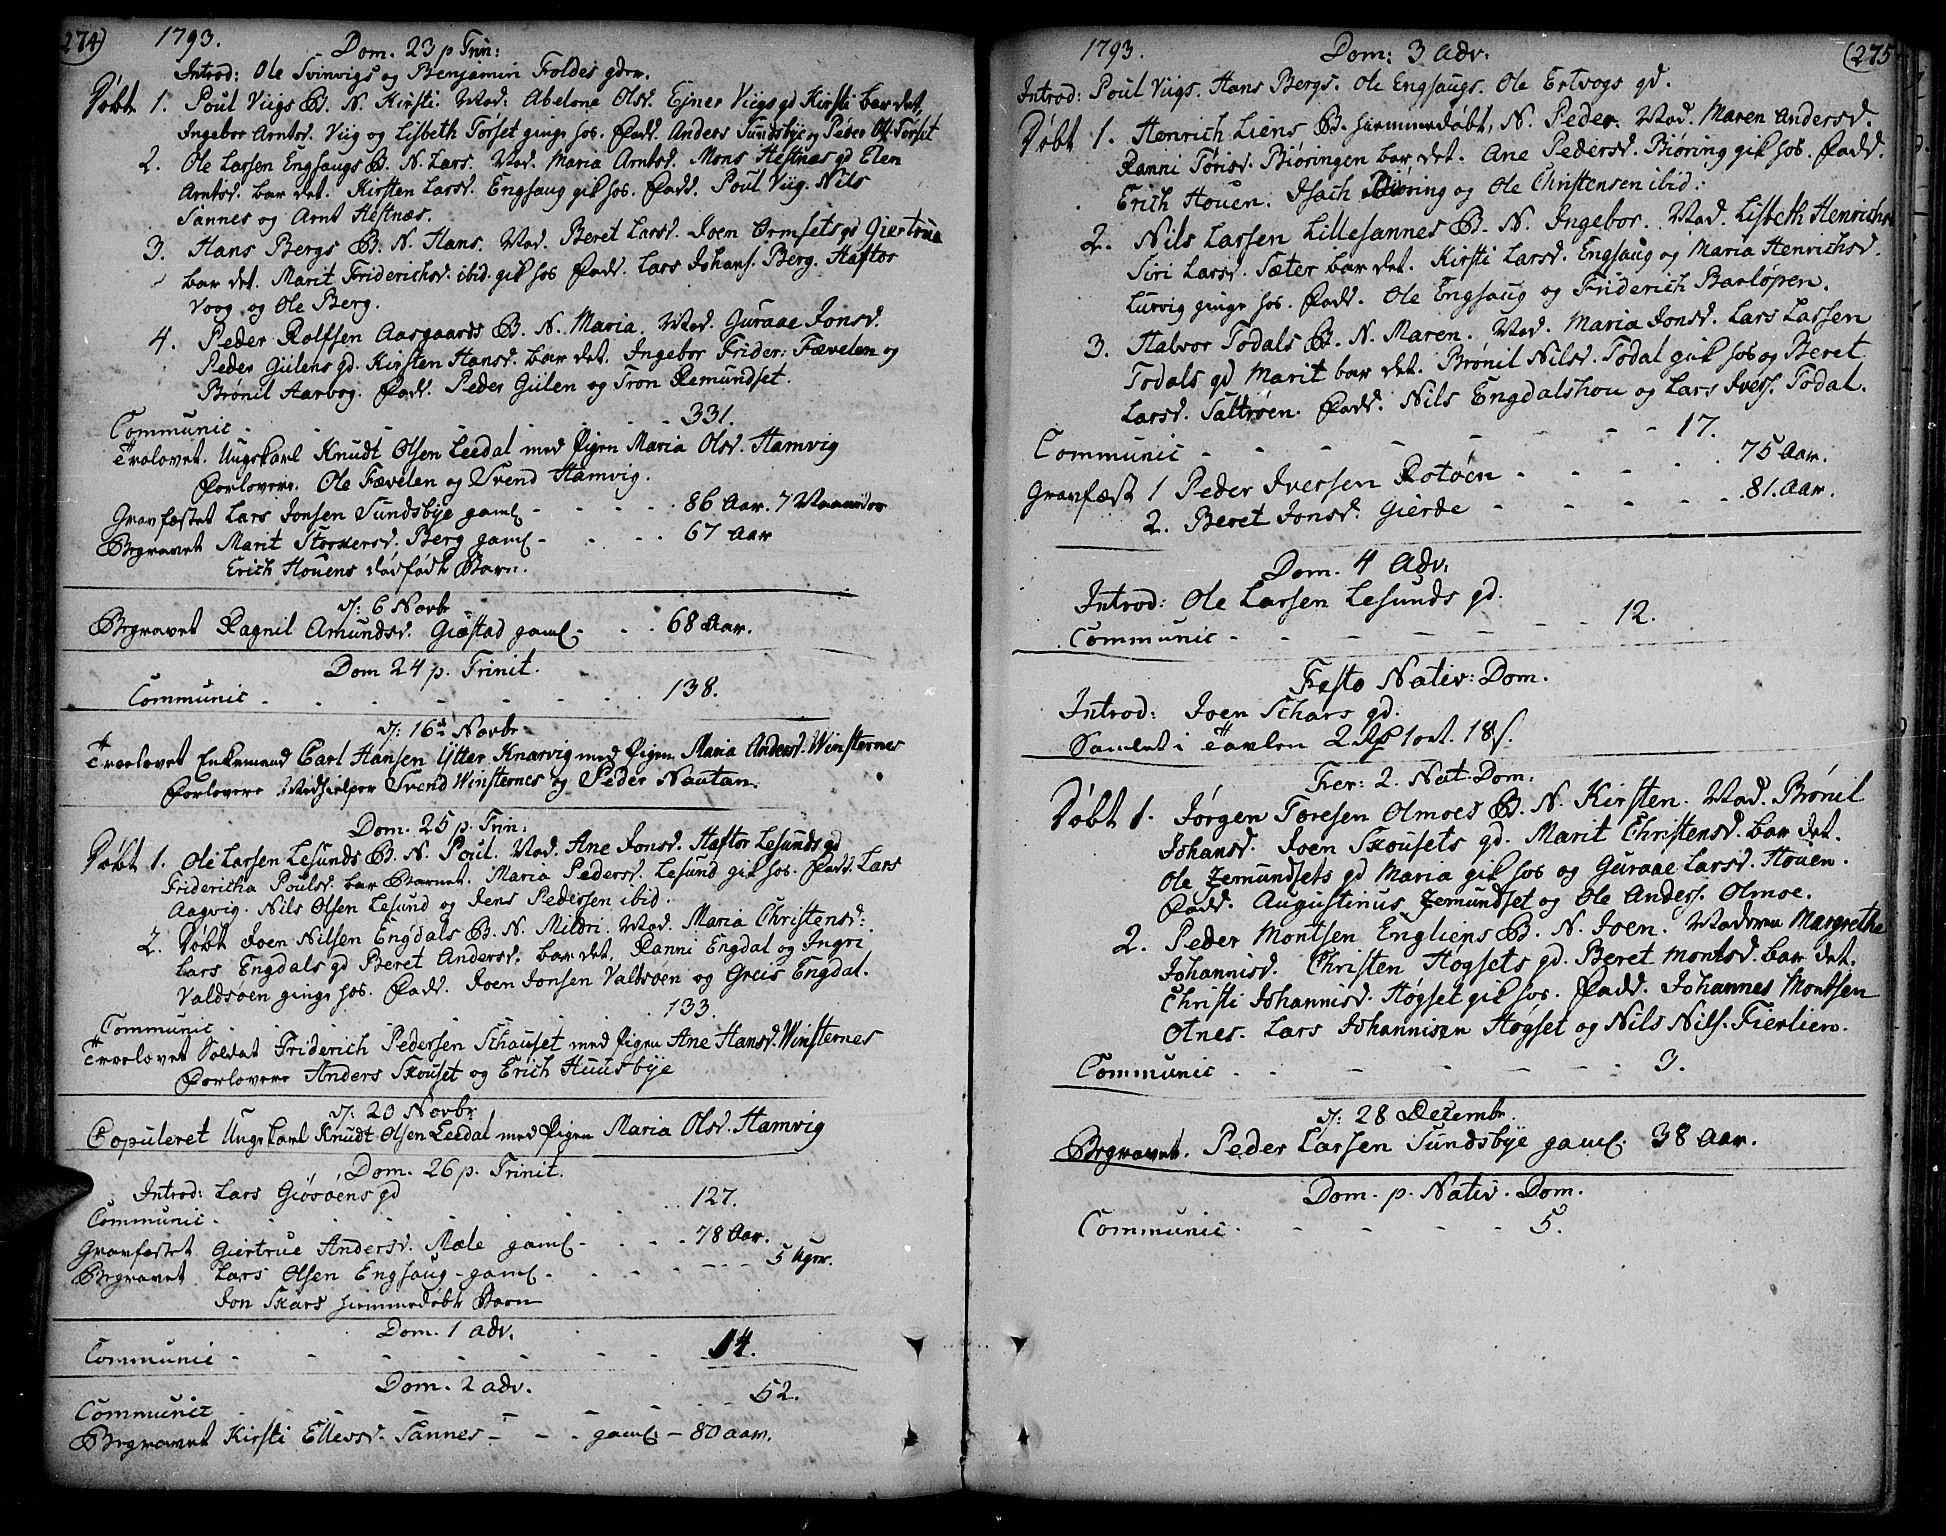 274) 1793.
Dom. 23 p Trin:
Introd: Ole Svinvigs og Benjamin Foldes gdr.
Døbt 1. Poul Viigs B. N. Kirsti. Mod: Abelone Olsd. Ejner Viigs gd Kirsti bar det,
Ingebor Arntsd. Viig og Lisbeth Torset ginge hos. Fadd. Anders Sundsbye og Peder Ol: Torset
2. Ole Larsen Engsaugs B. N. Lars. Mod. Maria Arntsd. Mons Hestnæs gd Elen
Arntsd. bar det. Kirsten Larsd. Engsaug gik hos. Fadd. Poul Viig. Nils
Sannes og Arnt Hestnæs.
3. Hans Bergs B. N. Hans. Mod. Beret Larsd. Joen Ormsets gd Giertrue
bar det. Marit Friderichsd. ibid. gik hos Fadd. Lars Johans. Berg. Haftor
Voog og Ole Berg.
4. Peder Rolfsen Aasgaards B. N. Maria. Mod. Guraae Jonsd.
Peder Gülens gd. Kirsten Hansd. bar det. Ingebor Frider: Fævelen og
Brønil Aarvog. Fadd. Peder Gülen og Tron Remundset.
Communic - - - 331.
Trolovet. Ungekarl Knudt Olsen Leedal med Pigen Maria Olsd. Hamvig
Forlovere. Ole Fævelen og Svend Hamvig.
Gravfæstet Lars Jonsen Sundsbye gaml - - - 86 Aar. 7 Maaneder
Begravet Marit Storkersd. Berg gaml - - - 67 Aar
Erich Houens dødfødt Barn.
d: 6 Novbr
Begravet Ragnil Amundsd. Giøstad gaml - - 68 Aar.
Dom 24 p. Trinit.
Communic - - - 138.
d: 16 Novbr
Troelovet Enkemand Carl Hansen Ytter Knarvig med Pigen Maria Andersd. Winsternes
Forlovere Medhielper Svend Winsternes og Peder Nautan.
Dom. 25 p. Trin:
Døbt 1. Ole Larsen Lesunds B. N. Poul. Mod. Ane Jonsd. Haftor Lesunds gd
Fridericha Poulsd. bar Barnet. Maria Pedersd. Lesund gik hos. Fadd. Lars
Aagvig. Nils Olsen Lesund og Jens Pedersen ibid.
2. Døbt Joen Nilsen Engdals B. N. Mildri. Mod. Maria Christensd:
Lars Engdals gd Beret Andersd. bar det, Ranni Engdal og Ingri
Valdsøen ginge hos. Fadd. Joen Jonsen Valdsøen og Greis Engdal.
Communic - - - 133.
Troelovet Soldat Friderich Pedersen Schauset med Pigen Ane Hansd. Winsternes
Forlovere Anders Skouset og Erich Huusbye
d: 20 Novbr
Copuleret Ungekarl Knudt Olsen Leedal med Pigen Maria Olsd. Hamvig
Dom. 26 p. Trinit.
Introd: Lars Giøsøens gd
Communic - - - 127.
Gravfæstet Giertrue Andersd. Mæle gaml - - - 78 Aar.
Begravet Lars Olsen Engsaug - gaml - - - 5 Uger.
Jon Skars hiemmedøbt Barn
Dom. 1 adv.
Communic - - - 14.
Dom. 2 adv.
Communic - - - 52.
Begravet Kirsti Ellevsd. Sannes - - - gaml - 80 aar.
1793. (275
Dom: 3 Adv.
Introd: Poul Viigs. Hans Bergs. Ole Engsaugs. Ole Ertvogs gd.
Døbt 1. Henrich Liens B. hiemmedøbt, N. Peder. Mod. Maren Andersd.
Ranni Torisd. Biøringen bar det. Ane Pedersd. Biøring gik hos. Fadd.
Erich Houen. Isach Biøring og Ole Christensen ibid:
2. Nils Larsen Lillesannes B. N. Ingebor. Mod. Lisbeth Henrichsd
Siri Larsd. Sæter bar det. Kirsti Larsd. Engsaug og Maria Henrichsd.
Lurvig ginge hos. Fadd. Ole Engsaug og Friderich Barløpen.
3. Halvor Todals B. N. Maren. Mod. Maria Jonsd. Lars Larsen
Todals gd Marit bar det. Brønil Nilsd. Todal gik hos og Beret
Larsd. Saltrøen. Fadd. Nils Engdalshou og Lars Ivers. Todal.
Communic - - - 17.
Gravfæst 1 Peder Iversen Rotøen - - - 75 Aar.
2. Beret Jonsd. Gierde - - - 81. Aar.
Dom. 4 Adv:
Introd: Ole Larsen Lesunds gd.
Communic - - - 12.
Festo Nativ: Dom.
Introd: Joen Schars gd.
Samlet i Tavlen 2 Rd 1 ort. 18 s.
Fer: 2. Nat. Dom:
Døbt 1. Jørgen Toresen Olmoes B. N. Kirsten. Mod. Brønil
Johansd. Joen Skousets gd. Marit Christensd. bar det.
Ole Zemundsets gd Maria gik hos og Guraae Larsd. Houen.
Fadd. Augustinus Zemundset og Ole Anders. Olmoe.
2. Peder Montsen Engliens B. N. Joen. Moderen Margrethe
Johannisd. Christen Høgsets gd. Beret Montsd. bar det.
Christi Johannisd. Høgset gik hos. Fadd. Johannes Montsen
Otnes. Lars Johannisen Høgset og Nils Nils. Fierlien.
Communic - - - 3.
d: 28 Decembr.
Begravet. Peder Larsen Sundsbye gaml. 38 Aar.
Dom. p. Nativ. Dom.
Communic - - - 5.